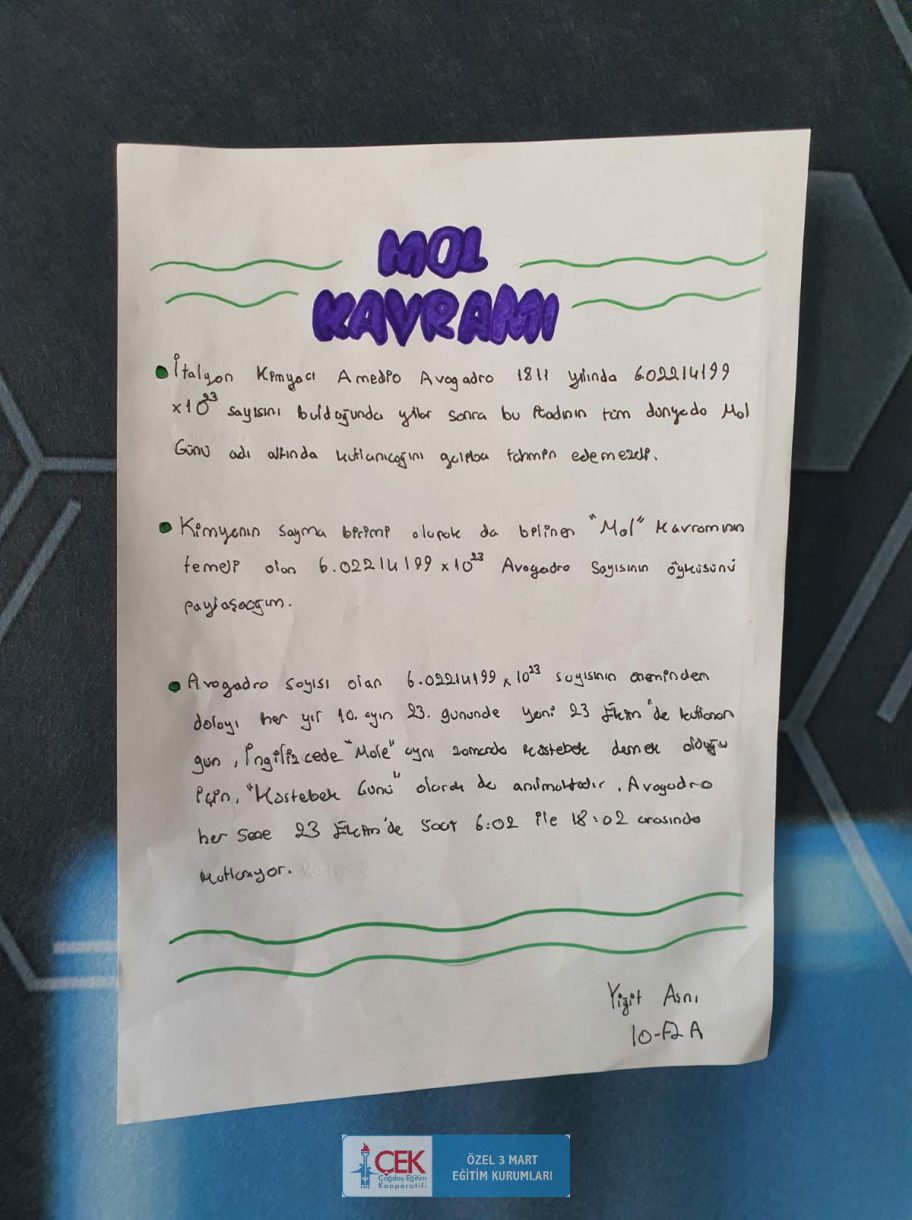 MOL
KAVRAMI
İtalyan Kimyacı Amedio Avogadro 1811 yılında 6.02214199
x10²³ sayısını bulduğunda yıllar sonra bu icadının tüm dünyada Mol
Günü adı altında kutlanıcağını galiba tahmin edemezdi.
Kimyanın sayma birimi olarak da bilinen "Mol" Kavramının
temeli olan 6.02214199x10²³ Avogadro Sayısının öyküsünü
paylaşacağım.
Avogadro sayısı olan 6.02214199x10²³ sayısının öneminden
dolayı her yıl 10. ayın 23. gününde yani 23 Ekim'de kutlanan
gün, İngilizcede "Mole" aynı zamanda köstebek demek olduğu
için, "Köstebek Günü" olarak da anılmaktadır. Avogadro
her sene 23 Ekim'de Saat 6:02 ile 18:02 arasında
kutlanıyor.
Yiğit
10-F2A
ÇEK
Çağdaş Eğitim
Kooperatifi
ÖZEL 3 MART
EĞİTİM KURUMLARI